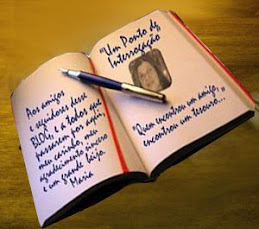 Aos amigos
e seguidores desse
BLOG, e a todos que
passaram por aqui,
meu carinho, meu
agradecimento sincero
e um grande beijo.
Maria
"Um Ponto de
Interrogação
"Quem encontrou um amigo,
encontrou um tesouro..."